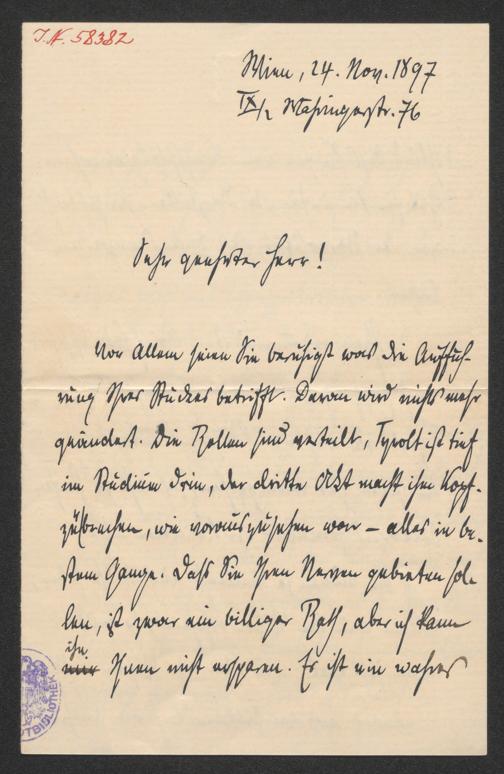 J.N. 58382
Wien, 24. Nov. 1897
IX/2 Währingerstr. 76
Sehr geehrter Herr!
Vor Allem seien Sie beruhigt was die Auffüh-
rung Ihres Stückes betrifft. Daran wird nichts mehr
geändert. Die Rollen sind verteilt, Tyrolt ist tief
im Studium drin, der dritte Akt macht ihm Kopf-
zerbrechen, wie vorauszusehen war – alles in be-
stem Gange. Daß Sie Ihren Nerven gebieten sol-
len, ist zwar ein billiger Rath, aber ich kann
ihn
mir Ihnen nicht ersparen. Es ist ein wahres
BIBLIOTHEK